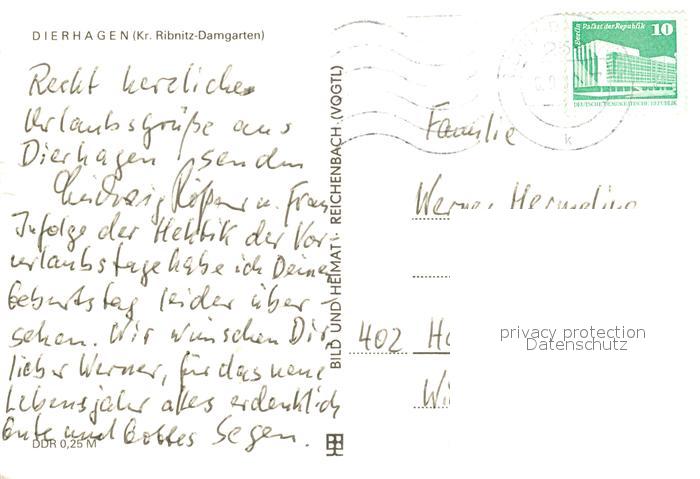 DIERHAGEN (Kr. Ribnitz-Damgarten)
Recht herzliche
Urlaubsgrüße aus
Dierhagen senden
Ludwig u. Frau
Infolge der Hektik der Vor-
urlaubstage habe ich Deinen
Geburtstag leider über-
sehen. Wir wünschen Dir,
lieber Werner, für das neue
Lebensjahr alles erdenklich
Gute und Gottes Segen.
DDR 0,25 M
BILD UND HEIMAT · REICHENBACH (VOGTL)
Berlin Palast der Republik
10
DEUTSCHE DEMOKRATISCHE REPUBLIK
k
Familie
Werner Hermeling
402 Ha
Wi
privacy protection
Datenschutz